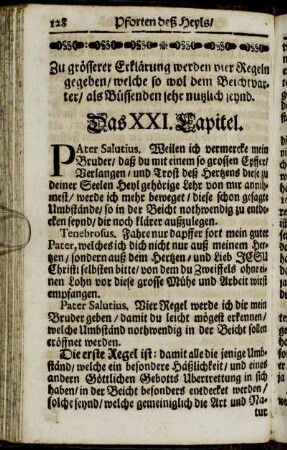 128 Pforten deß Heyls/
Zu grösserer Erklärung werden vier Regeln
gegeben/ welche so wol dem Beichtvat-
ter/ als Büssenden sehr nutzlich seynd.
Das XXI. Capitel.
PAter Salutius. Weilen ich vermercke mein
Bruder/ daß du mit einem so grossen Eyffer/
Verlangen/ und Trost deß Hertzens diese zu
deiner Seelen Heyl gehörige Lehr von mir annih-
mest/ werde ich mehr beweget/ diese schon gesagte
Umbstände/ so in der Beicht nothwendig zu entde-
cken seynd/ dir noch klärer außzulegen.
Tenebrosus. Fahre nur dapffer fort mein guter
Pater, welches ich dich nicht nur auß meinem Her-
tzen/ sondern auß dem Hertzen/ und Lieb JESU
Christi selbsten bitte/ von dem du Zweiffels ohne ei-
nen Lohn vor diese grosse Mühe und Arbeit wirst
empfangen.
Pater Salutius. Vier Regel werde ich dir mein
Bruder geben/ damit du leicht mögest erkennen/
welche Umbständ nothwendig in der Beicht sollen
eröffnet werden.
Die erste Regel ist: damit alle die jenige Umb-
ständ/ welche ein besondere Häßlichkeit/ und eines
andern Göttlichen Gebotts Ubertrettung in sich
haben/ in der Beicht besonders entdecket werden/
solche seynd/ welche gemeiniglich die Art und Na-
tur